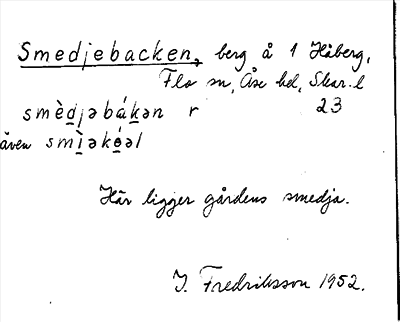 Smedjebacken, berg å 1 Håberg,
Flo sn, Åse hd, Skar. l
smèd̲jəbák̲ən r 23
även smì̲əkó̲əl
Här ligger gårdens smedja.
J. Fredriksson 1952.